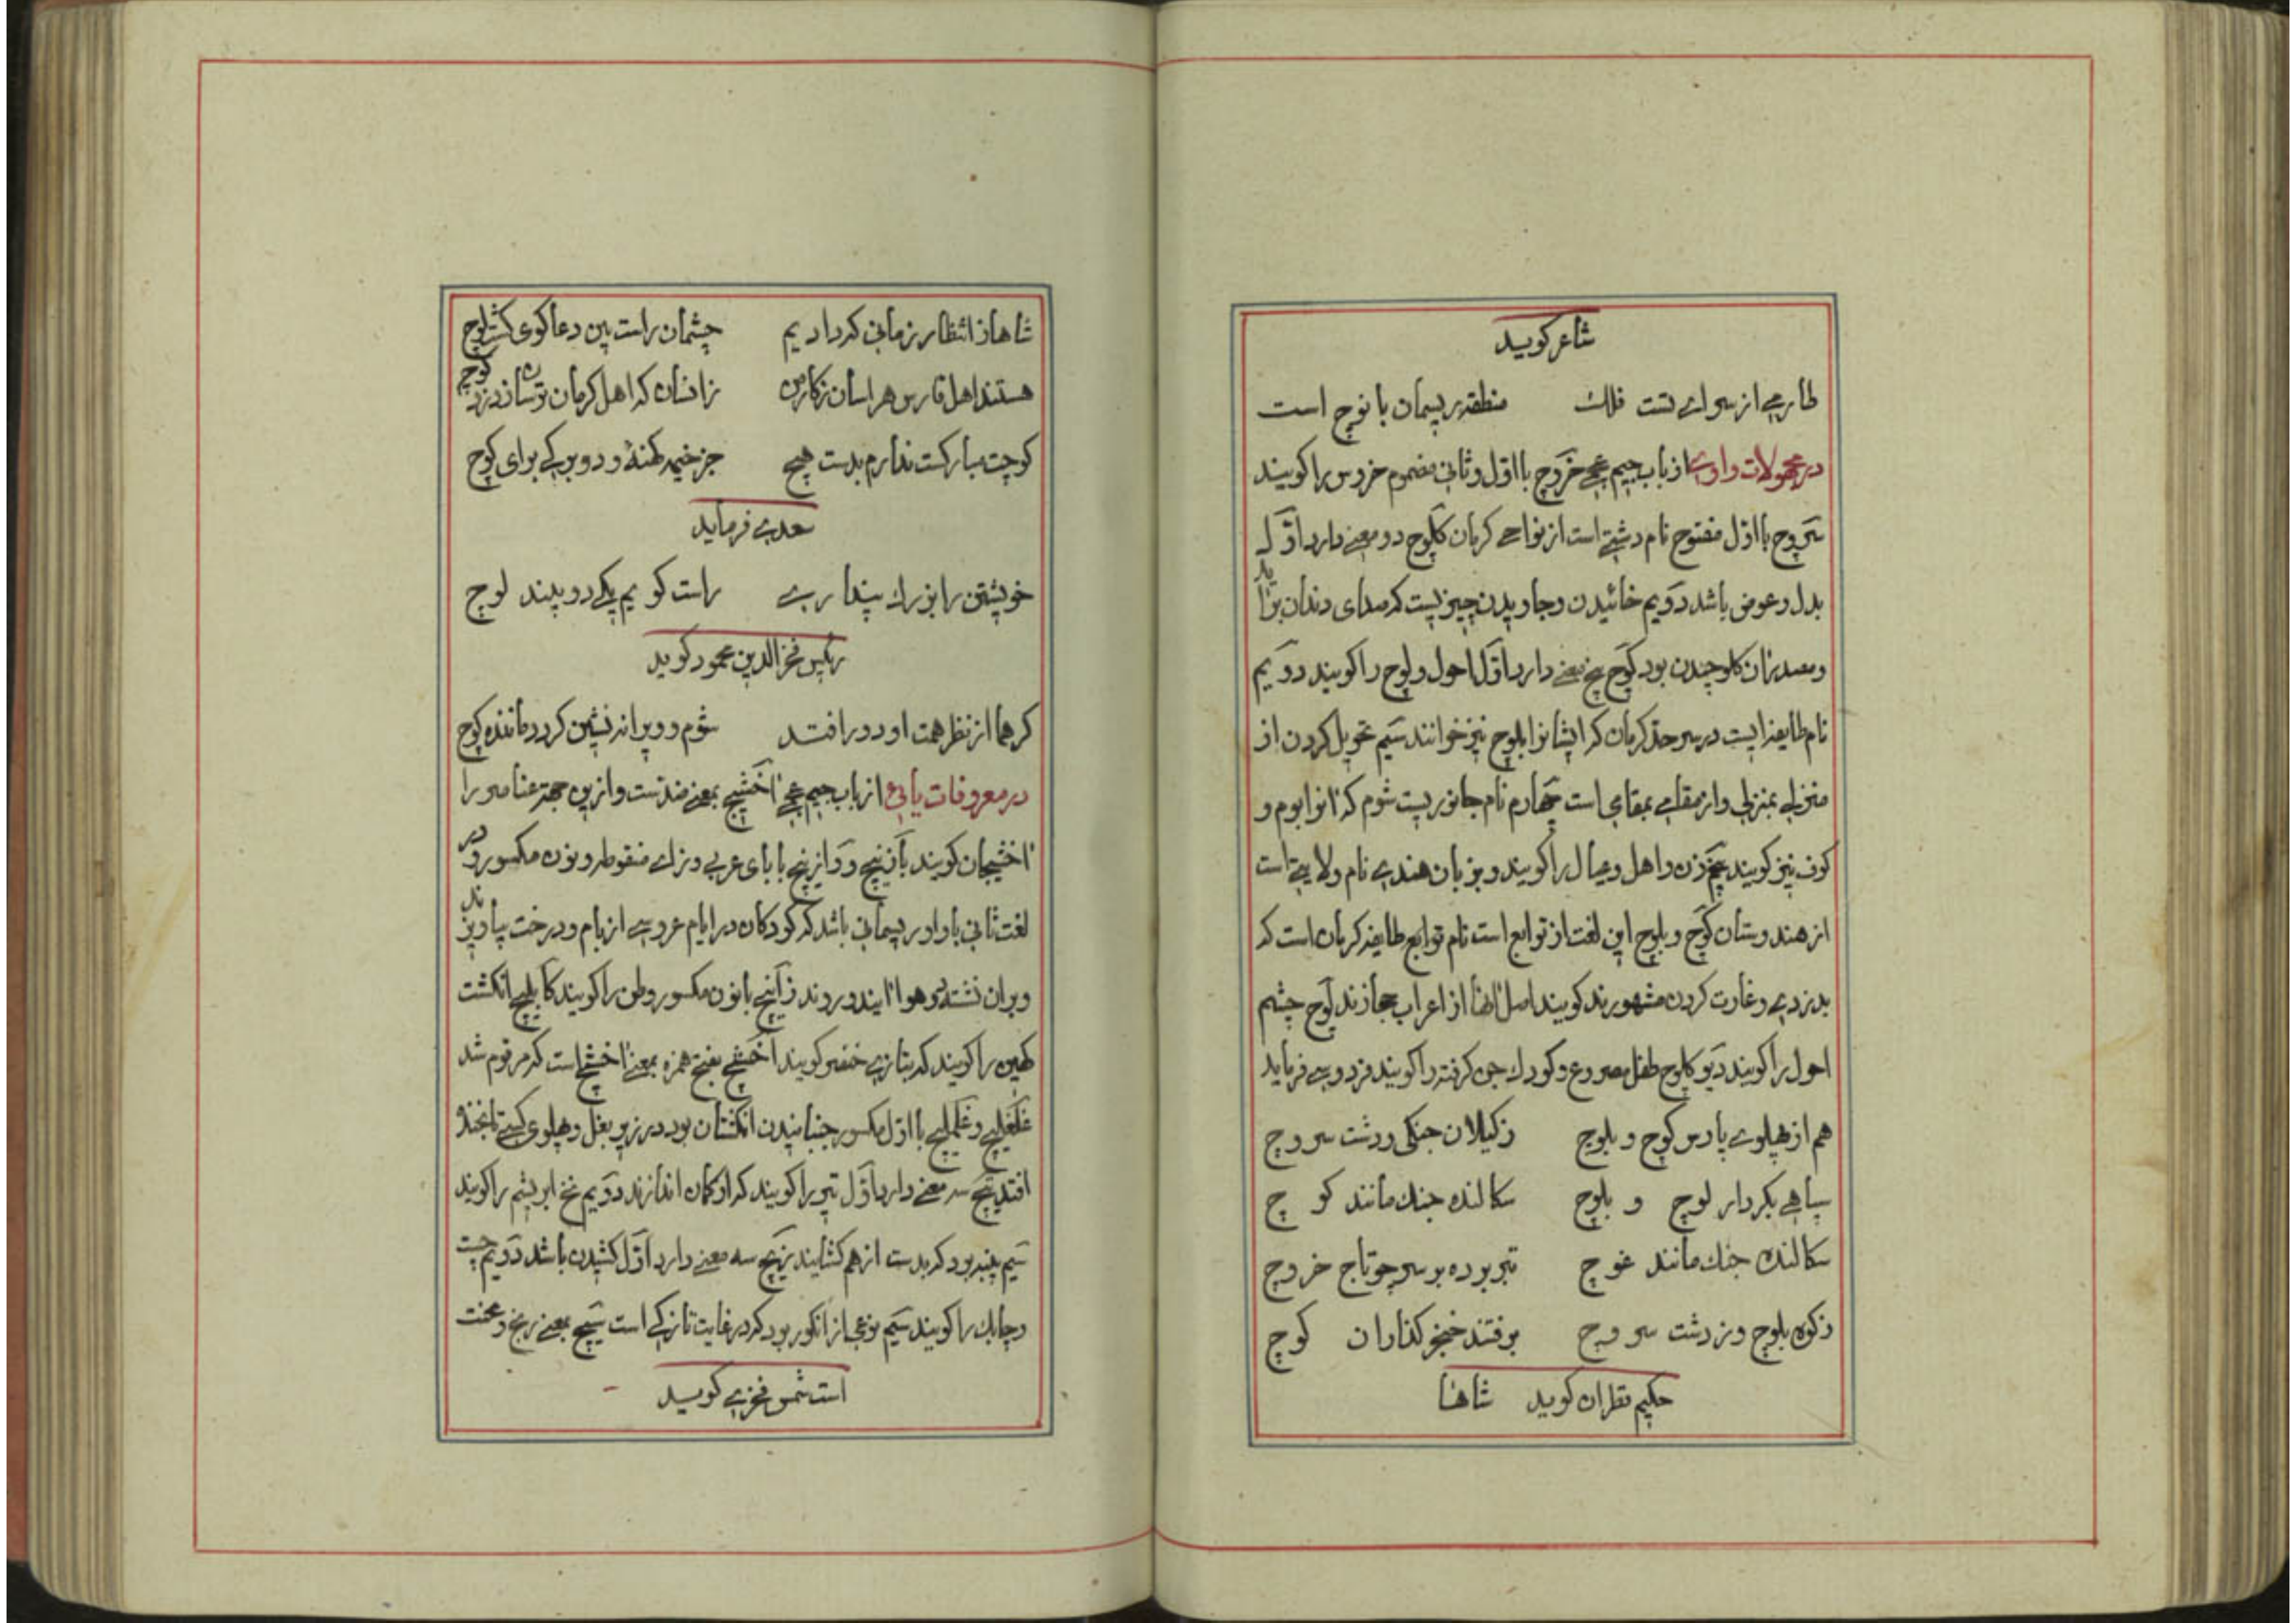 شاعر کوید
طارمی از سرای تست فلک منطقه ریسمان بانوج است
در مجهولات واوی از باب جیم عجمی خروچ با اول و ثانی مضموم خروس را کویند
سروچ با اول مفتوح نام دشتی است از نواحی کرمان کلوچ دو معنی دارد اول
بدل و عوض باشد دویم خائیدن و جاویدن چیزیست که صدای دندان براید
و مصدر آن کلوچیدن بود کوچ پنج معنی دارد اول احول و لوچ را کویند دویم
نام طایفه ایست در سرحد کرمان که ایشانرا بلوچ نیز خوانند سیم تحویل کردن از
منزلی بمنزلی و از مقامی بمقامی است چهارم نام جانوریست شوم که انرا بوم و
کوف نیز کویند پنجم زن و اهل و عیال را کویند و بزبان هندی نام ولایتی است
از هندوستان کوچ و بلوچ این لغت از توابع است نام توابع طایفه کرمان است که
بدزدی و غارت کردن مشهورند کویند اصل انها از اعراب حجازند لوچ چشم
احول را کویند دیو کلوچ طفل مصروع و کودک جن کرفته را کویند فردوسی فرماید
هم از پهلوی پارس کوچ و بلوچ ز کیلان جنکی و دشت سروچ
سپاهی بکردار لوچ و بلوچ سکالنده جنک مانند کوچ
سکالنده جنک مانند غوچ تبر برده بر سر چو تاج خروچ
ز کوه بلوچ و ز دشت سروچ برفتند خنجر کذاران کوچ
حکیم قطران کوید شاها
شاها ز انتظار زمانی که دادیم چشمان راست بین دعاکوی کشت لوچ
هستند اهل فارس هراسان ز کار من زانسان که اهل کرمان ترسان ز دزد کوچ
کوچت مبارکست ندارم بدست هیچ جز خیمه کهنه و دو برکی برای کوچ
سعدی فرماید
خویشتن را بزرک پنداری راست کویم یکی دو بیند لوچ
رئیس فخرالدین محمود کوید
کر هما از نظر همت او دور افتد شوم و ویرانه نشین کردد ماننده کوچ
در معروفات یائی از باب جیم عجمی اخشیج بمعنی ضدست و از این جهة عناصر را
اخشیجان کویند بازنیچ و وازنیچ با بای عربی و زای منقوطه و نون مکسور و در
لغت ثانی با واو ریسمانی باشد که کودکان در ایام عروسی از بام و درخت بیاویزند
و بران نشسته در هوا ایند و روند زانیچ با نون مکسور وطن را کویند کابلیچ انکشت
کهین را کویند که بتازی خنصر کویند اخشیج بفتح همزه بمعنی اخشیج است که مرقوم شد
غلغلیچ و غلملیچ با اول مکسور جنبانیدن انکشتان بود در زیر بغل و پهلوی کسی تا بخنده
افتد تیچ سه معنی دارد اول تیر را کویند که از کمان اندازند دویم نخ ابریشم را کویند
سیم پنبه بود که بدست از هم کشایند زیچ سه معنی دارد اول کشیدن باشد دویم چست
و چابک را کویند سیم نوعی از انکور بود که در غایت نازکی است سیچ بمعنی رنج و محنت
است شمس فخری کوید